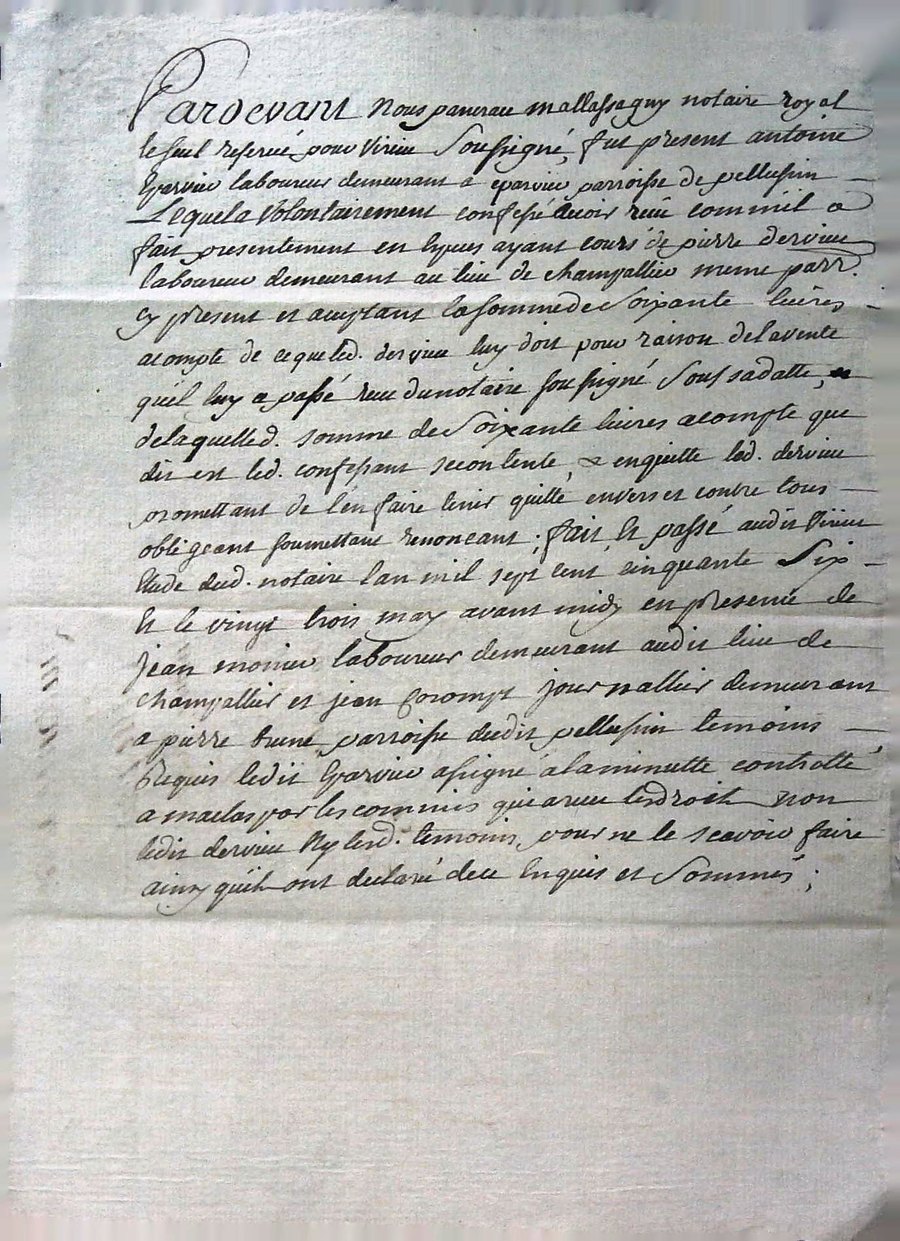 Pardevant Nous pancrace mallassagny notaire royal
le seul reservé pour Virieu Soussigné, fut present antoine
Eparvier laboureur demeurant a eparvier parroisse de pellussin
Lequel a Volontairement confessé avoir reçu comm'il a
fait presentement en Especes ayant cours de pierre dervieu
laboureur demeurant au lieu de champallier meme parr.
Cy present et acceptant la somme de Soixante livres
acompte de ce que led. dervieu luy doit pour raison de la vente
qu'il luy a passé reçue du notaire soussigné Sous sa datte,
de laquelle d. somme de Soixante livres acompte que
dit est led. confessant se contente, & en quitte led. dervieu
promettant de l'en faire tenir quitte envers et contre tous
obligeant soumettant renonceant. fait Et passé audit Virieu
Etude dud. notaire l'an mil sept cent cinquante Six
Et le vingt trois may avant midy en presence de
jean monier laboureur demeurant audit lieu de
champallier et jean Corompt journallier demeurant
a pierre brune parroisse dudit pellussin temoins
Requis ledit Eparvier a signé a la minutte controllé
a maclas par les commis qui a reçu les droits non
ledit dervieu Ny lesd. temoins pour ne le scavoir faire
ainsy qu'ils ont declaré de ce Enquis et Sommés;